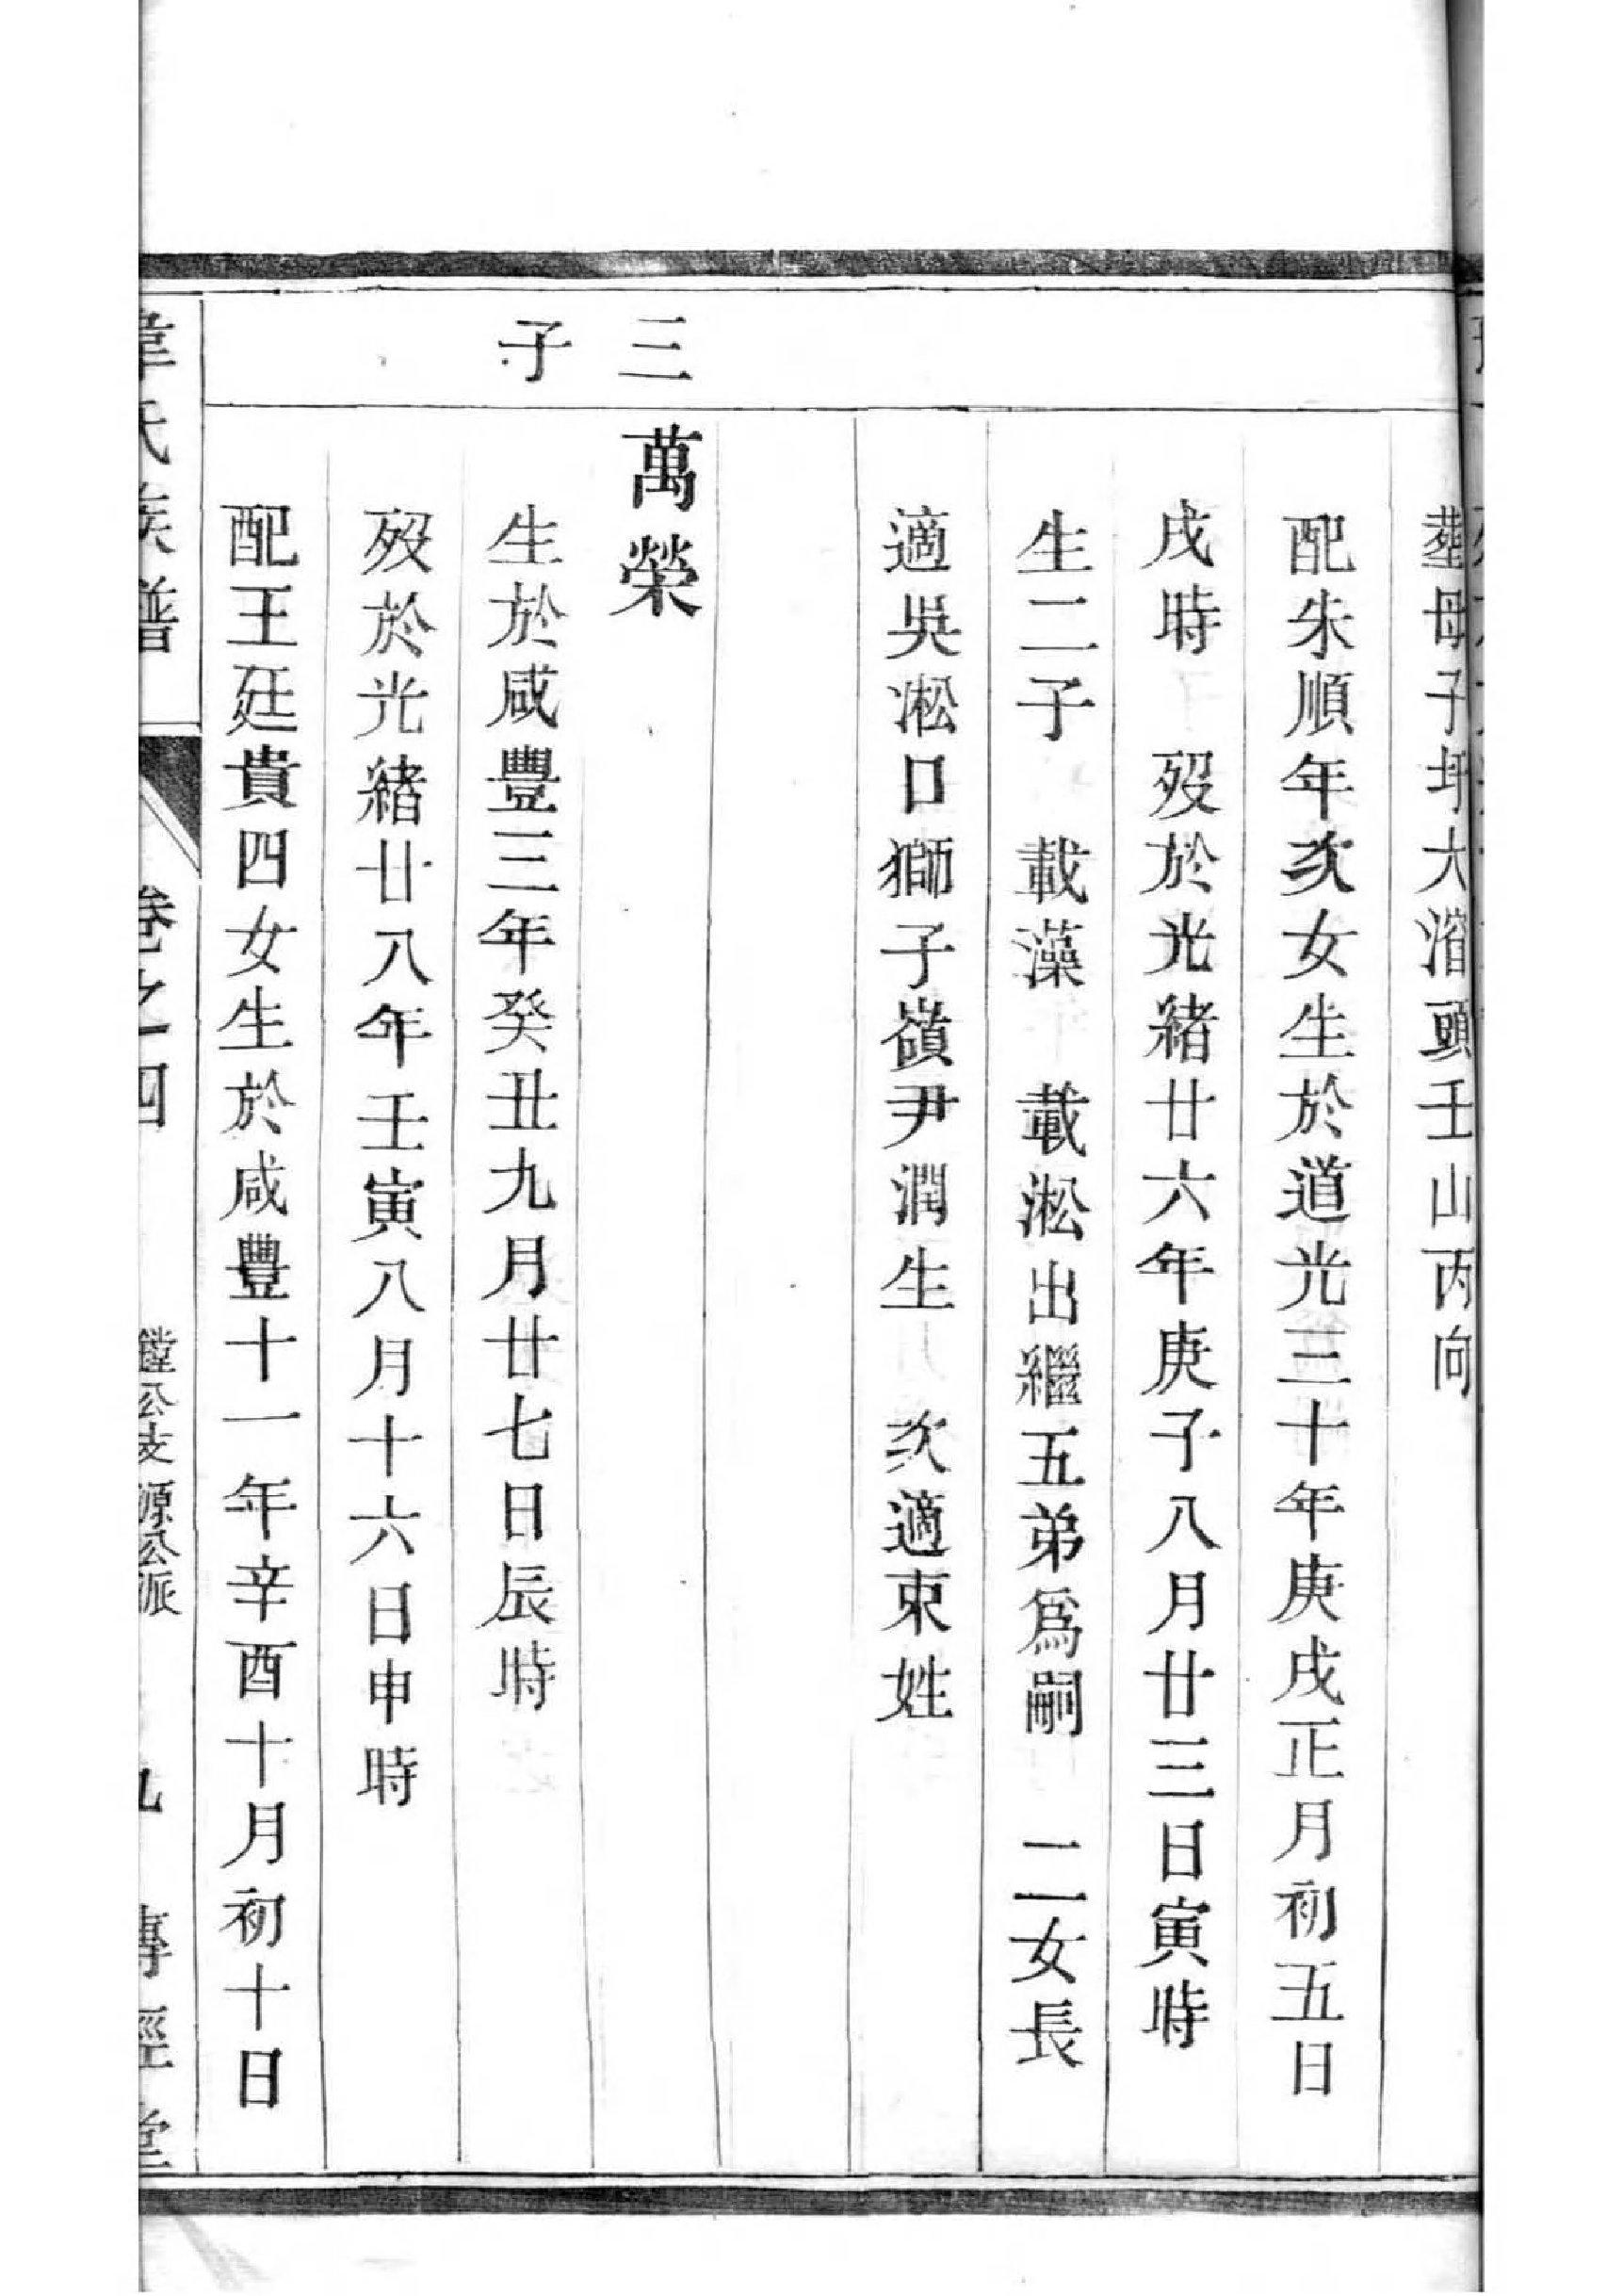 塟母子坪大湽頭壬山丙向
配朱順年次女生於道光三十年庚戌正月初五日
戌時　歿於光緒廿六年庚子八月廿三日寅時
生二子　載藻　載淞出繼五弟爲嗣　二女長
適吳淞口獅子嶺尹潤生　次適束姓
三子
萬榮
生於咸豐三年癸丑九月廿七日辰時
歿於光緒廿八年壬寅八月十六日申時
配王廷貴四女生於咸豐十一年辛酉十月初十日
韋氏族譜　卷之四　鏜公支源公派　九　傳經堂